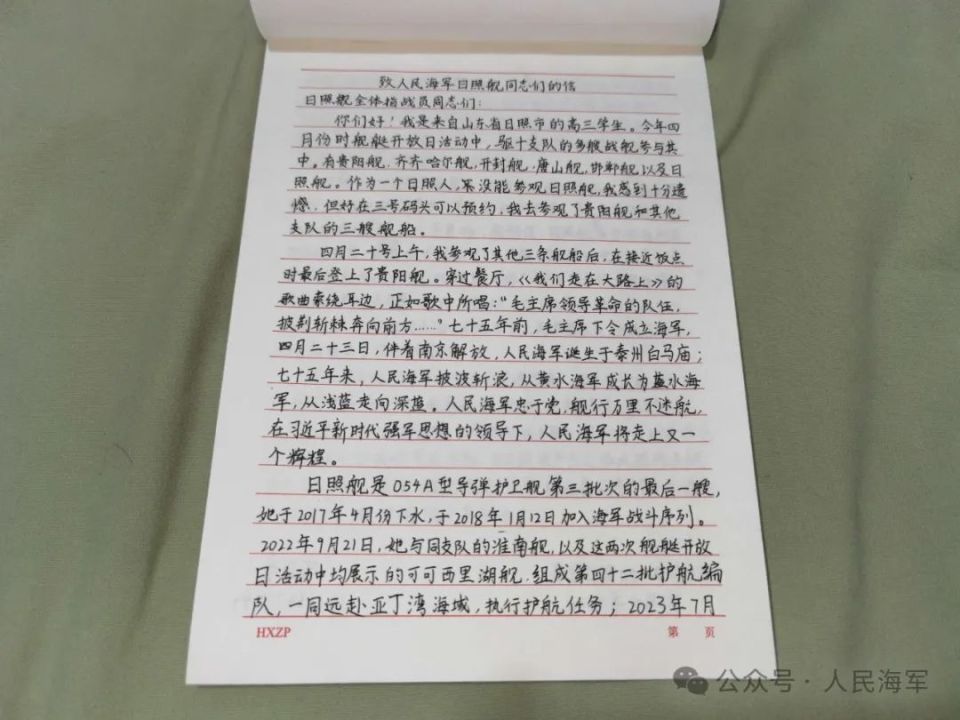 致人民海军日照舰同志们的信
日照舰全体指战员同志们：
你们好！我是来自山东省日照市的高三学生。今年四
月份时舰艇开放日活动中，驱十支队的多艘战舰参与其
中。有贵阳舰、齐齐哈尔舰、开封舰、唐山舰、邯郸舰以及日
照舰。作为一个日照人，没能参观日照舰，我感到十分遗
憾，但好在三号码头可以预约，我去参观了贵阳舰和其他
支队的三艘舰船。
四月二十号上午，我参观了其他三条舰船后，在接近饭点
时最后登上了贵阳舰。穿过餐厅，《我们走在大路上》的
歌曲萦绕耳边，正如歌中所唱：“毛主席领导革命的队伍，
披荆斩棘奔向前方……”七十五年前，毛主席下令成立海军，
四月二十三日，伴着南京解放，人民海军诞生于泰州白马庙；
七十五年来，人民海军披波斩浪，从黄水海军成长为蓝水海
军，从浅蓝走向深蓝。人民海军忠于党，舰行万里不迷航，
在习近平新时代强军思想的领导下，人民海军将走上又一
个辉煌。
日照舰是054A型导弹护卫舰第三批次的最后一艘，
她于2017年4月份下水，于2018年1月12日加入海军战斗序列。
2022年9月21日，她与同支队的淮南舰，以及这两次舰艇开放
日活动中均展示的可可西里湖舰，组成第四十二批护航编
队，一同远赴亚丁湾海域，执行护航任务；2023年7月
HXZP
第 页
公众号·人民海军